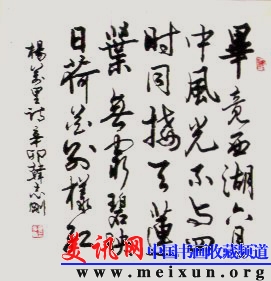 畢竟西湖六月
中風光不與四
時同接天蓮
葉無窮碧映
日荷花別樣紅
楊萬里詩辛卯韓志剛
美讯网 中国书画收藏频道
www.meixun.org